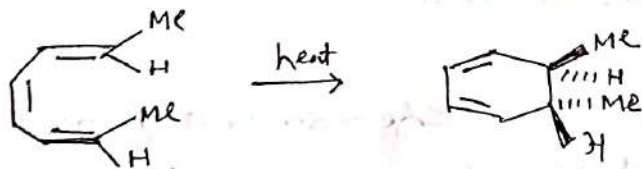 Me
H
Me
H
heat
Me
H
Me
H